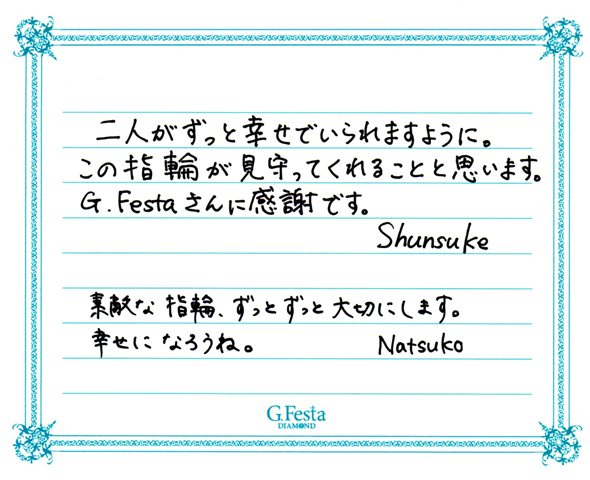 二人がずっと幸せでいられますように。
この指輪が見守ってくれることと思います。
G.Festaさんに感謝です。
Shunsuke
素敵な指輪、ずっとずっと大切にします。
幸せになろうね。 Natsuko
G.Festa
DIAMOND